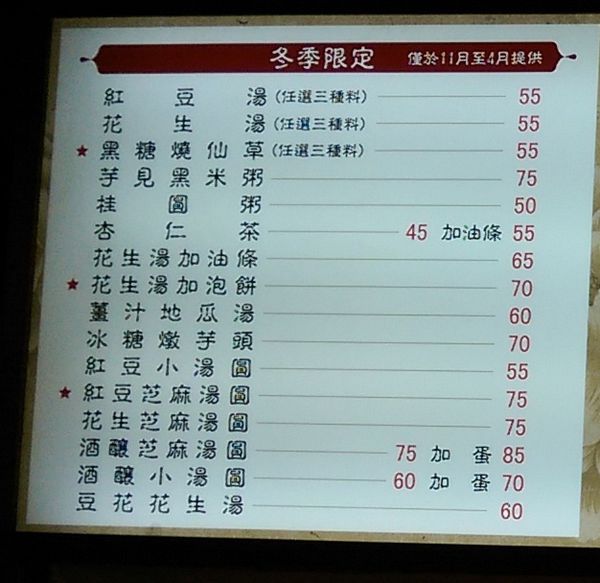 冬季限定 僅於11月至4月提供
紅豆湯(任選三種料) 55
花生湯(任選三種料) 55
★黑糖燒仙草(任選三種料) 55
芋見黑米粥 75
桂圓粥 50
杏仁茶 45 加油條 55
花生湯加油條 65
★花生湯加泡餅 70
薑汁地瓜湯 60
冰糖燉芋頭 70
紅豆小湯圓 55
★紅豆芝麻湯圓 75
花生芝麻湯圓 75
酒釀芝麻湯圓 75 加蛋 85
酒釀小湯圓 60 加蛋 70
豆花花生湯 60